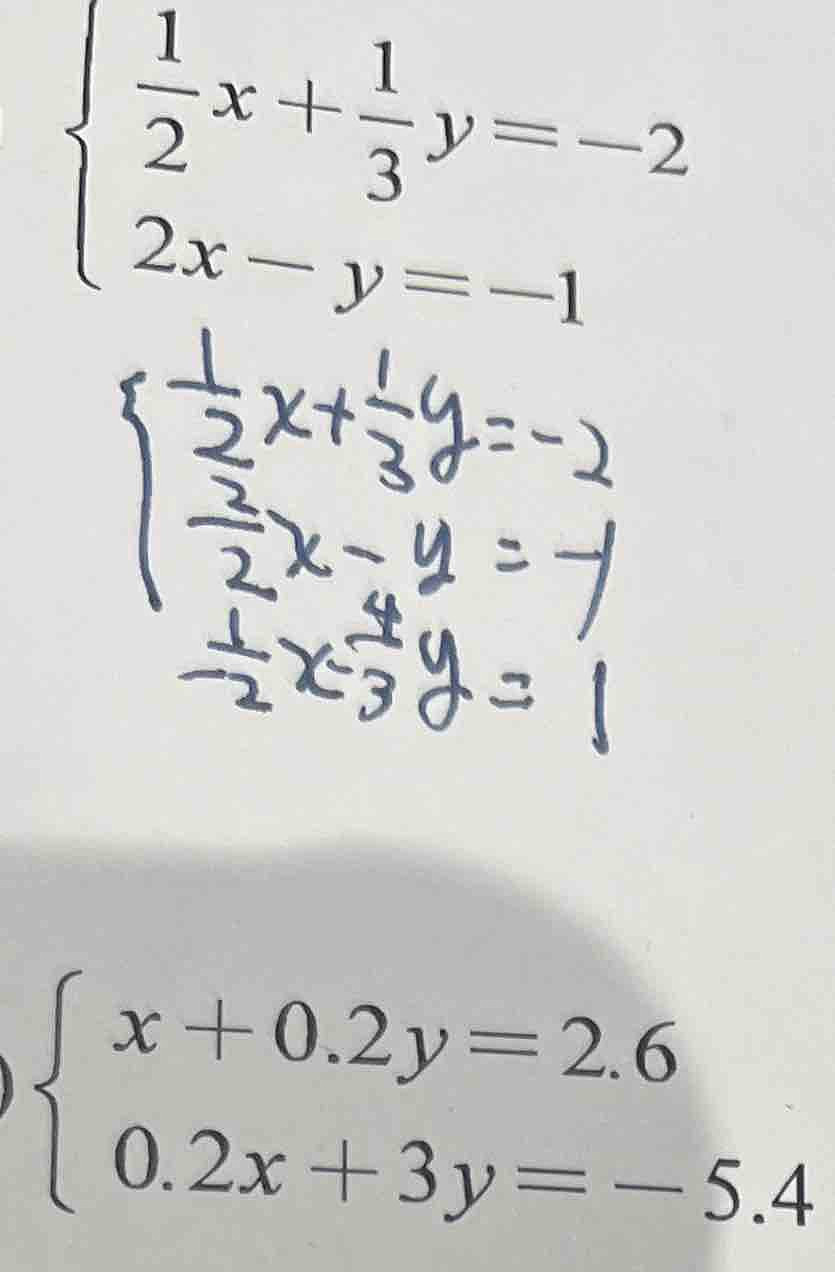 1/2 x + 1/3 y = -2
2x - y = -1
1/2 x + 1/3 y = -2
2/2 x - y = -1
-1/2 x - 4/3 y = 1
x + 0.2y = 2.6
0.2x + 3y = -5.4